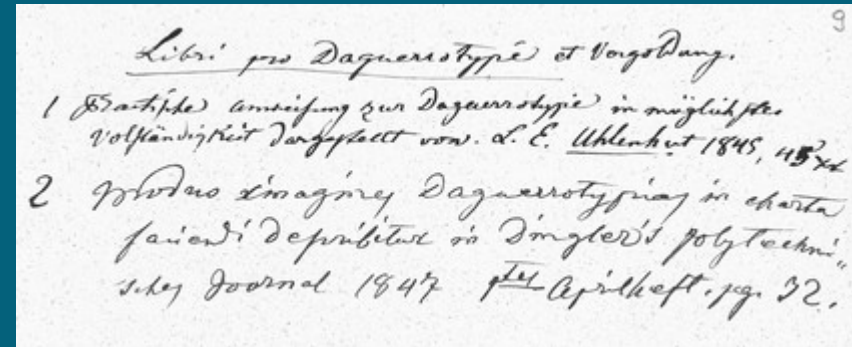 9
Libri pro Daguerrotypie et Vergoldung.
1 Practische Anweisung zur Daguerrotypie in möglichster
Vollständigkeit dargestellt von L. E. Uhlenhut 1845, 45 xr
2 Modus imagines Daguerrotypicas in charta
faciendi describitur in Dingler's polytechni„
sches Journal 1847 1tes Aprilheft. pg. 32.